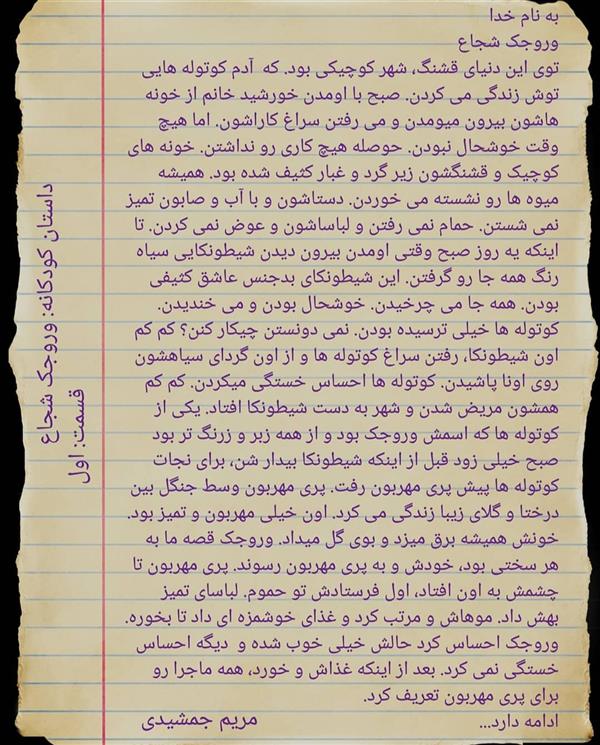 به نام خدا
وروجک شجاع
توی این دنیای قشنگ، شهر کوچیکی بود. که آدم کوتوله هایی
توش زندگی می کردن. صبح با اومدن خورشید خانم از خونه
هاشون بیرون میومدن و می رفتن سراغ کاراشون. اما هیچ
وقت خوشحال نبودن. حوصله هیچ کاری رو نداشتن. خونه های
کوچیک و قشنگشون زیر گرد و غبار کثیف شده بود. همیشه
میوه ها رو نشسته می خوردن. دستاشون و با آب و صابون تمیز
نمی شستن. حمام نمی رفتن و لباساشون و عوض نمی کردن. تا
اینکه یه روز صبح وقتی اومدن بیرون دیدن شیطونکایی سیاه
رنگ همه جا رو گرفتن. این شیطونکای بدجنس عاشق کثیفی
بودن. همه جا می چرخیدن. خوشحال بودن و می خندیدن.
کوتوله ها خیلی ترسیده بودن. نمی دونستن چیکار کنن؟ کم کم
اون شیطونکا، رفتن سراغ کوتوله ها و از اون گردای سیاهشون
روی اونا پاشیدن. کوتوله ها احساس خستگی میکردن. کم کم
همشون مریض شدن و شهر به دست شیطونکا افتاد. یکی از
کوتوله ها که اسمش وروجک بود و از همه زبر و زرنگ تر بود
صبح خیلی زود قبل از اینکه شیطونکا بیدار شن، برای نجات
کوتوله ها پیش پری مهربون رفت. پری مهربون وسط جنگل بین
درختا و گلای زیبا زندگی می کرد. اون خیلی مهربون و تمیز بود.
خونش همیشه برق میزد و بوی گل میداد. وروجک قصه ما به
هر سختی بود، خودش و به پری مهربون رسوند. پری مهربون تا
چشمش به اون افتاد، اول فرستادش تو حموم. لباسای تمیز
بهش داد. موهاش و مرتب کرد و غذای خوشمزه ای داد تا بخوره.
وروجک احساس کرد حالش خیلی خوب شده و دیگه احساس
خستگی نمی کرد. بعد از اینکه غذاش و خورد، همه ماجرا رو
برای پری مهربون تعریف کرد.
ادامه دارد...
مریم جمشیدی
داستان کودکانه: وروجک شجاع
قسمت: اول